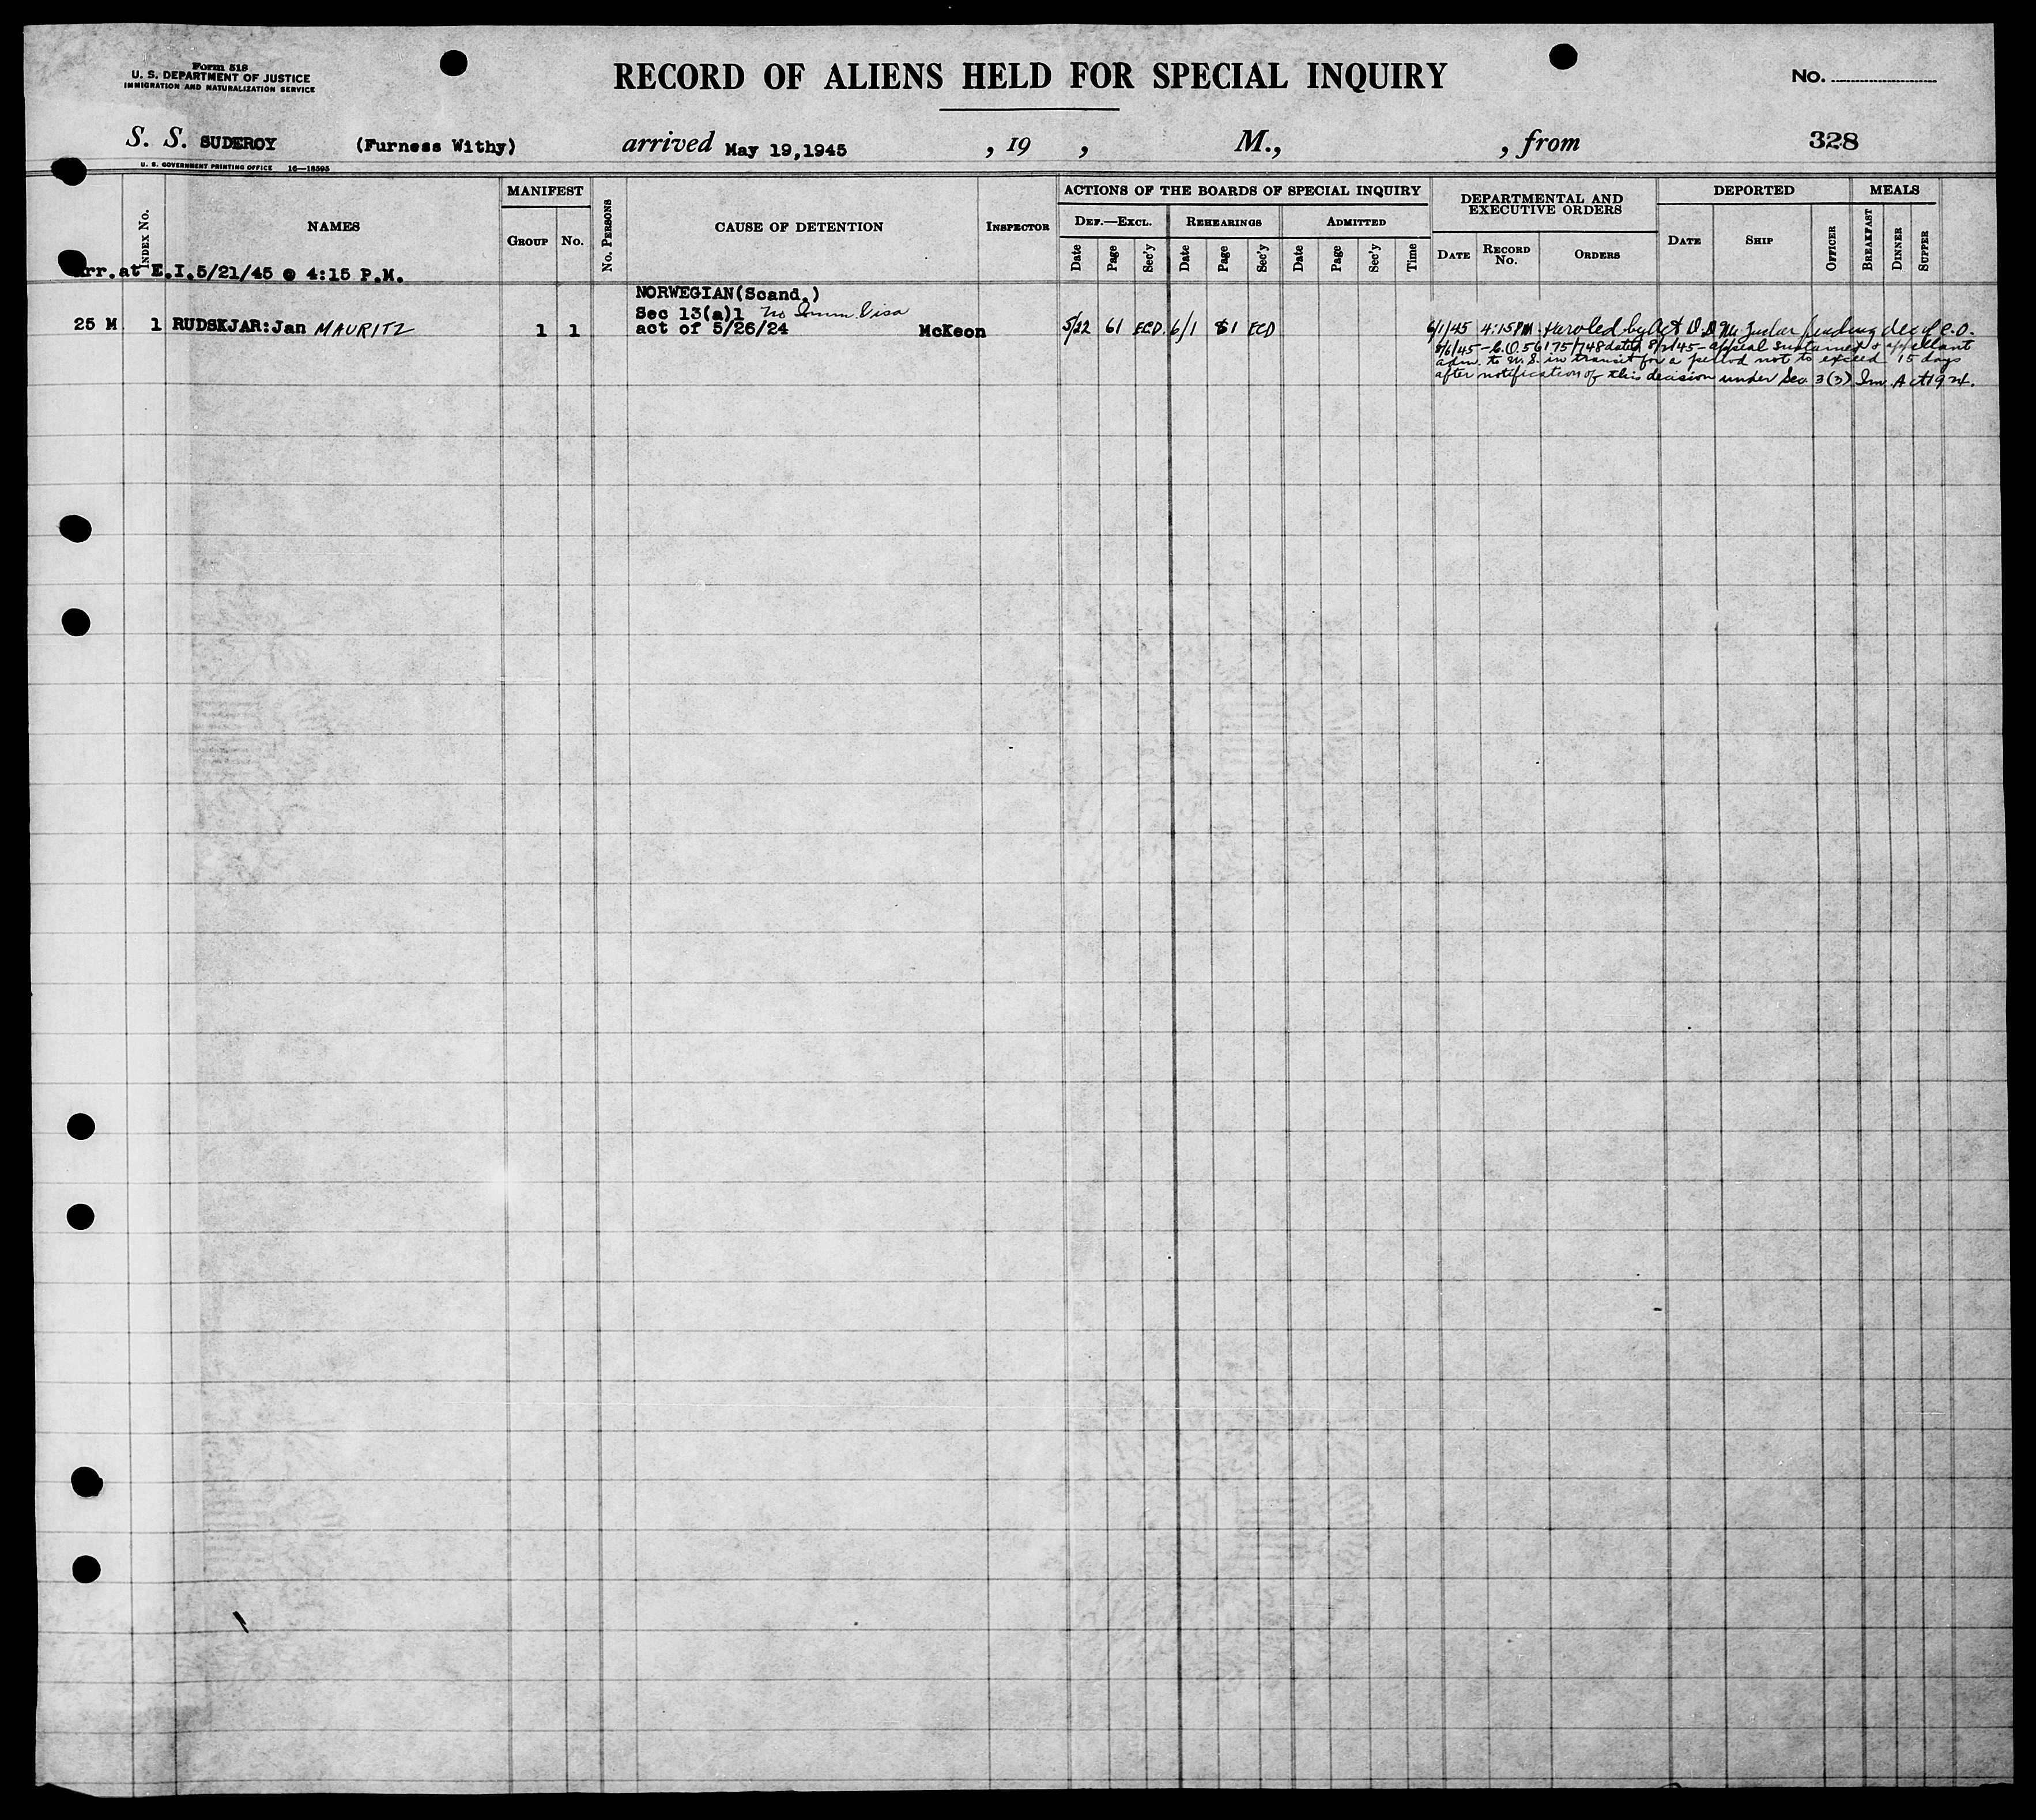 Form 518
U. S. DEPARTMENT OF JUSTICE
IMMIGRATION AND NATURALIZATION SERVICE
RECORD OF ALIENS HELD FOR SPECIAL INQUIRY
No.
S. S. SUDEROY (Furness Withy) arrived May 19,1945 , 19 , M., , from 328
U. S. GOVERNMENT PRINTING OFFICE 16—18595
INDEX No.
NAMES
MANIFEST
GROUP No.
No. PERSONS
CAUSE OF DETENTION
INSPECTOR
ACTIONS OF THE BOARDS OF SPECIAL INQUIRY
DEF.—EXCL. REHEARINGS ADMITTED
Date Page Sec'y Date Page Sec'y Date Page Sec'y Time
DEPARTMENTAL AND
EXECUTIVE ORDERS
DATE RECORD No. ORDERS
DEPORTED
DATE SHIP OFFICER
MEALS
BREAKFAST DINNER SUPPER
Arr.at E.I.5/21/45 @ 4:15 P.M.
NORWEGIAN(Scand.)
Sec 13(a)1 No Imm. Visa
25 M 1 RUDSKJAR:Jan MAURITZ 1 1 act of 5/26/24 McKeon 5/22 61 ECD. 6/1 81 ECD 6/1/45 4:15PM Paroled by Act D.D. Mr. pending dec of C.O.
8/6/45 - C.O. 56175/748 dated 8/2/45 - appeal sustained & appellant
adm. to U.S. in transit for a period not to exceed 15 days
after notification of this decision under Sec 3(3) Im. Act 1924.